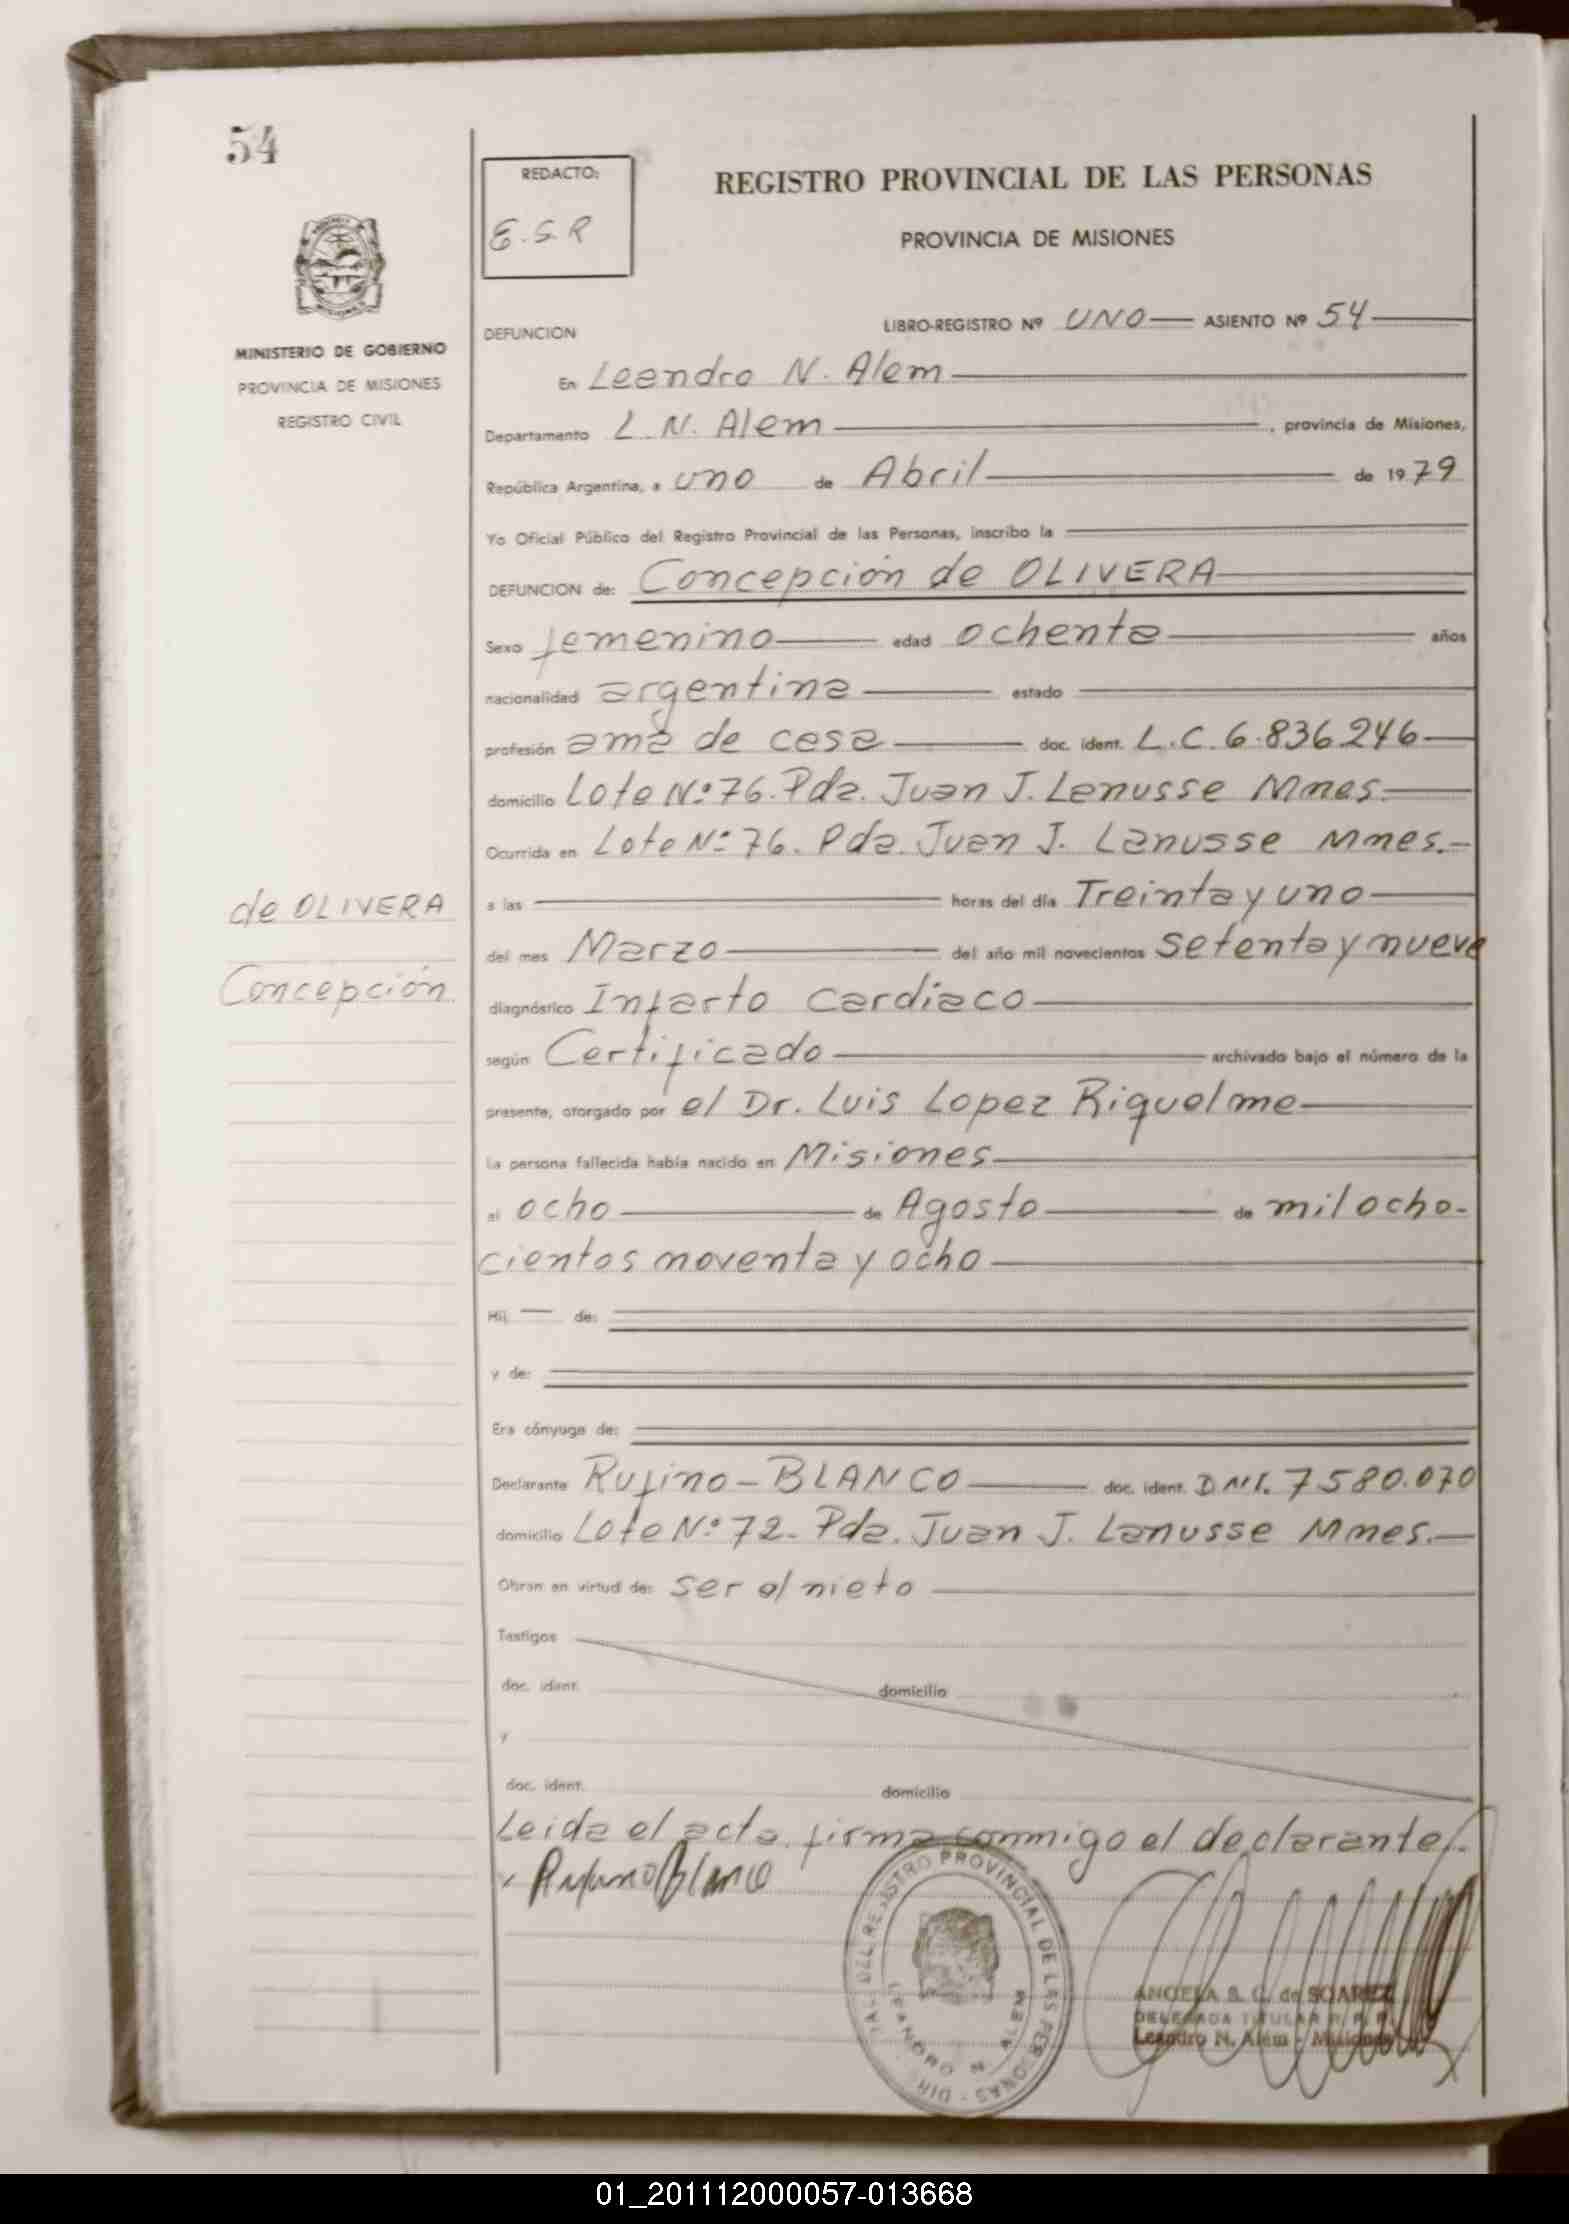 54
REDACTO:
E.S.R
REGISTRO PROVINCIAL DE LAS PERSONAS
PROVINCIA DE MISIONES
MINISTERIO DE GOBIERNO
PROVINCIA DE MISIONES
REGISTRO CIVIL
DEFUNCION
LIBRO-REGISTRO Nº UNO ASIENTO Nº 54
En Leandro N. Alem
Departamento L. N. Alem , provincia de Misiones,
República Argentina, a uno de Abril de 1979
Yo Oficial Público del Registro Provincial de las Personas, inscribo la
DEFUNCION de: Concepción de OLIVERA
Sexo femenino edad ochenta años
nacionalidad argentina estado
profesión ama de casa doc. ident. L.C. 6.836246
domicilio Lote Nº 76. Pda. Juan J. Lanusse Mnes.
Ocurrida en Lote Nº 76. Pda. Juan J. Lanusse Mnes.
a las horas del día Treinta y uno
del mes Marzo del año mil novecientos setenta y nueve
de OLIVERA
Concepción
diagnóstico Infarto Cardíaco
según Certificado archivado bajo el número de la
presente, otorgado por el Dr. Luis Lopez Riquelme
la persona fallecida había nacido en Misiones
el ocho de Agosto de mil ocho-
cientos noventa y ocho
Hij de:
y de:
Era cónyuge de:
Declarante Rufino - BLANCO doc. ident. DNI. 7580.070
domicilio Lote Nº 72. Pda. Juan J. Lanusse Mnes.
Obran en virtud de: ser el nieto
Testigos
doc. ident. domicilio
y
doc. ident. domicilio
Leida el acta, firma conmigo el declarante.
x Rufino Blanco
DIR. REGISTRO PROVINCIAL DE LAS PERSONAS
LEANDRO N. ALEM
ANGELA S. C. de SOAREZ
DELEGADA TITULAR R. P. P.
Leandro N. Alem - Misiones
01_201112000057-013668